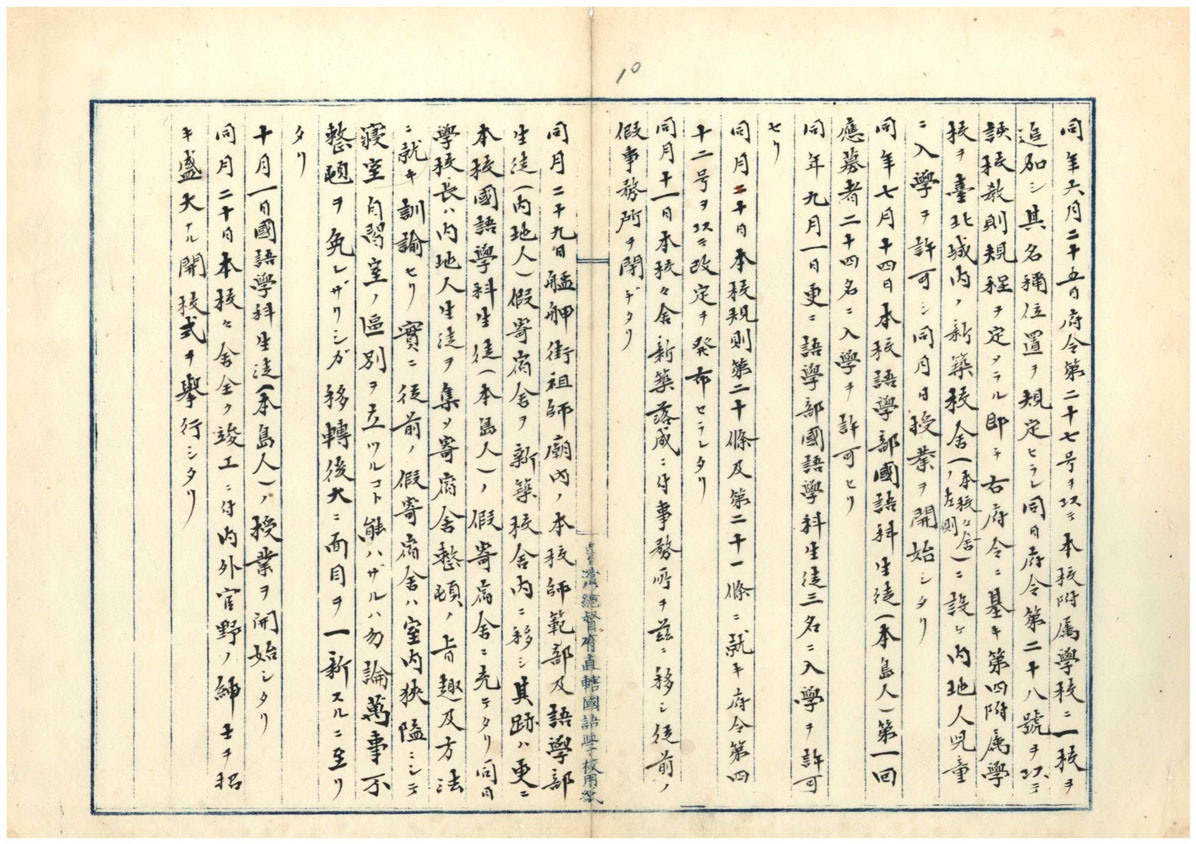 10
同年六月二十五日府令第二十七号ヲ以テ本校附属学校ニ一校ヲ
追加シ其名稱位置ヲ規定セラレ同日府令第二十八號ヲ以テ
該校教則規程ヲ定メラル即チ右府令ニ基キ第四附属學
校ヲ臺北城内ノ新築校舍(本校々舍ノ左側)ニ設ケ内地人児童
ニ入學ヲ許可シ同月日授業ヲ開始シタリ
同年七月十四日本校語學部國語科生徒(本島人)第一回
應募者二十四名ニ入學ヲ許可セリ
同年九月一日更ニ語學部國語學科生徒三名ニ入學ヲ許可
セリ
同月二十日本校規則第二十條及第二十一條ニ就キ府令第四
十二号ヲ以テ改定ヲ発布セラレタリ
同月十一日本校々舍新築落成ニ付事務所ヲ茲ニ移シ従前ノ
假事務所ヲ閉ヂタリ
同月二十九日艋舺街祖師廟内ノ本校師範部及語學部
生徒(内地人)假寄宿舍ヲ新築校舍内ニ移シ其跡ハ更ニ
本校國語學科生徒(本島人)ノ假寄宿舍ニ充テタリ同日
學校長ハ内地人生徒ヲ集メ寄宿舍整頓ノ旨趣及方法
ニ就キ訓諭セリ實ニ従前ノ假寄宿舍ハ室内狹隘ニシテ
寢室自習室ノ區別ヲ立ツルコト能ハザルハ勿論萬事不
整頓ヲ免レザリシガ移轉後大ニ面目ヲ一新スルニ至リ
タリ
十月一日國語學科生徒(本島人)ノ授業ヲ開始シタリ
同月二十日本校々舍全ク竣工ニ付内外官野ノ紳士ヲ招
キ盛大ナル開校式ヲ擧行シタリ
臺灣總督府直轄國語學校用紙